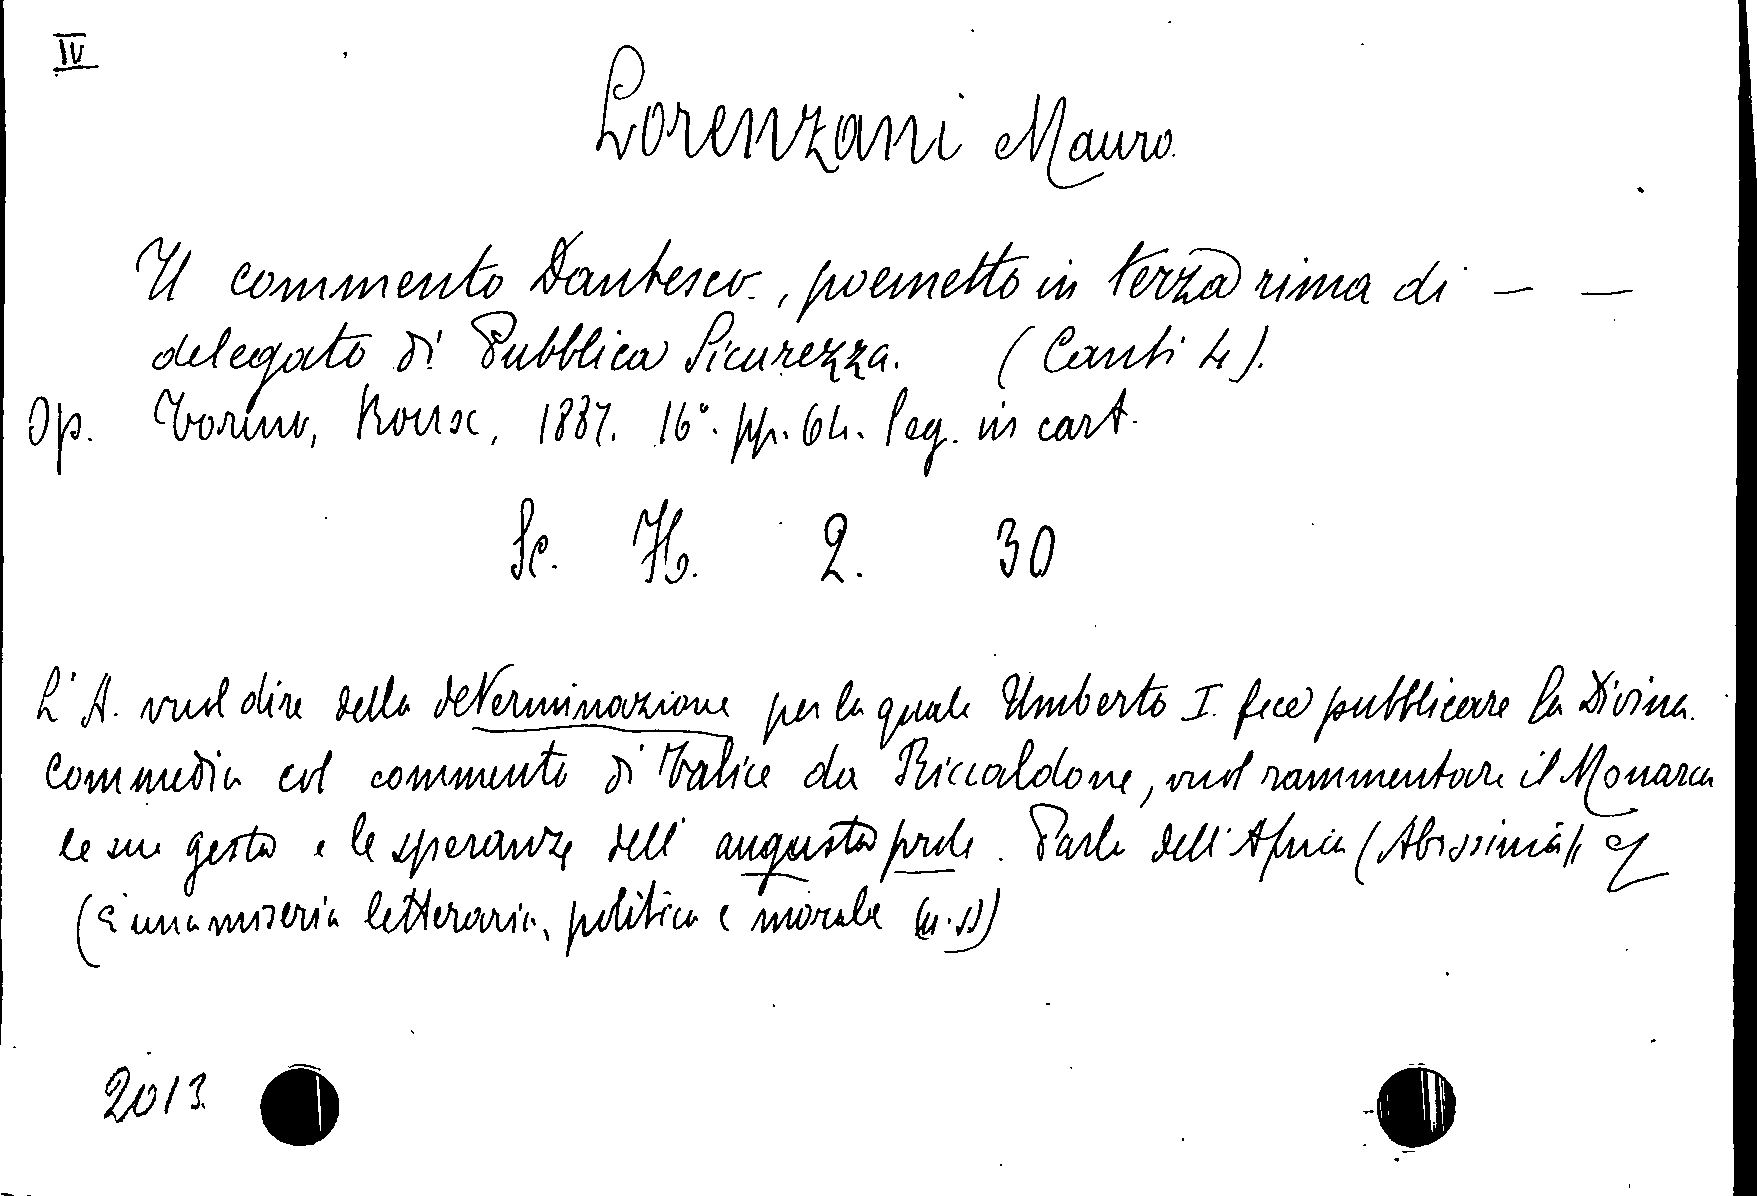 IV
Lorenzani Mauro.
Il commento Dantesco., poemetto in terza rima di — —
delegato di Pubblica Sicurezza. (Canti 4).
Op. Torino, Roux, 1887. 16°. pp. 64. leg. in cart.
Sc. H. 2. 30
L'A. vuol dire della determinazione per la quale Umberto I. fece pubblicare la Divina
Commedia col commento di Talice da Riccaldone, vuol rammentare il Monarca
le sue gesta e le speranze dell'augusta prole. Parla dell'Africa (Abissinia)
(È una miseria letteraria, politica e morale
2013.